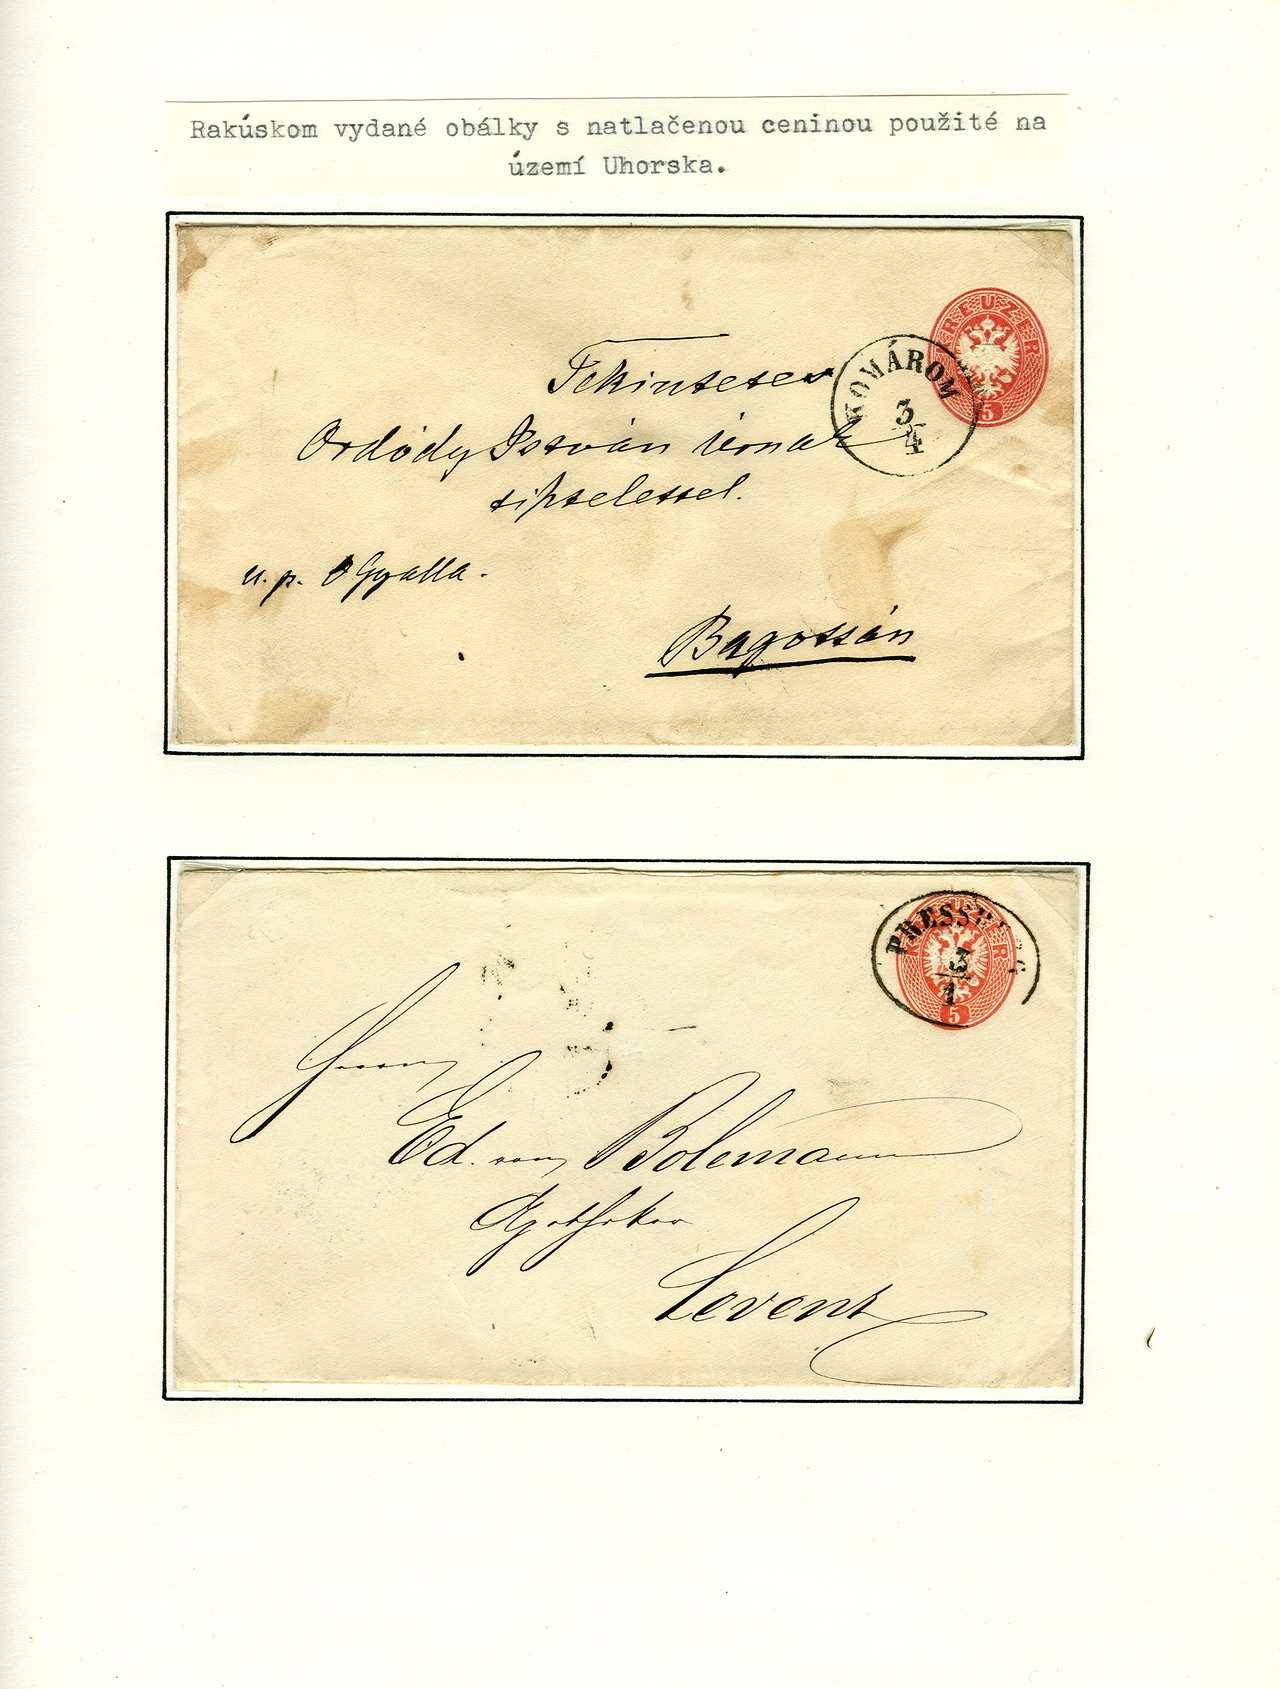 Rakúskom vydané obálky s natlačenou ceninou použité na
území Uhorska.
KREUZER
5
KOMÁROM
3/4
Tekintetes
Ordódy István úrnak
tisztelettel.
u. p. OGyalla.
Bagottán
KREUZER
5
PRESSBURG
3/1
Herrn
Ed. von Bolemann
Apotheker
Levenz